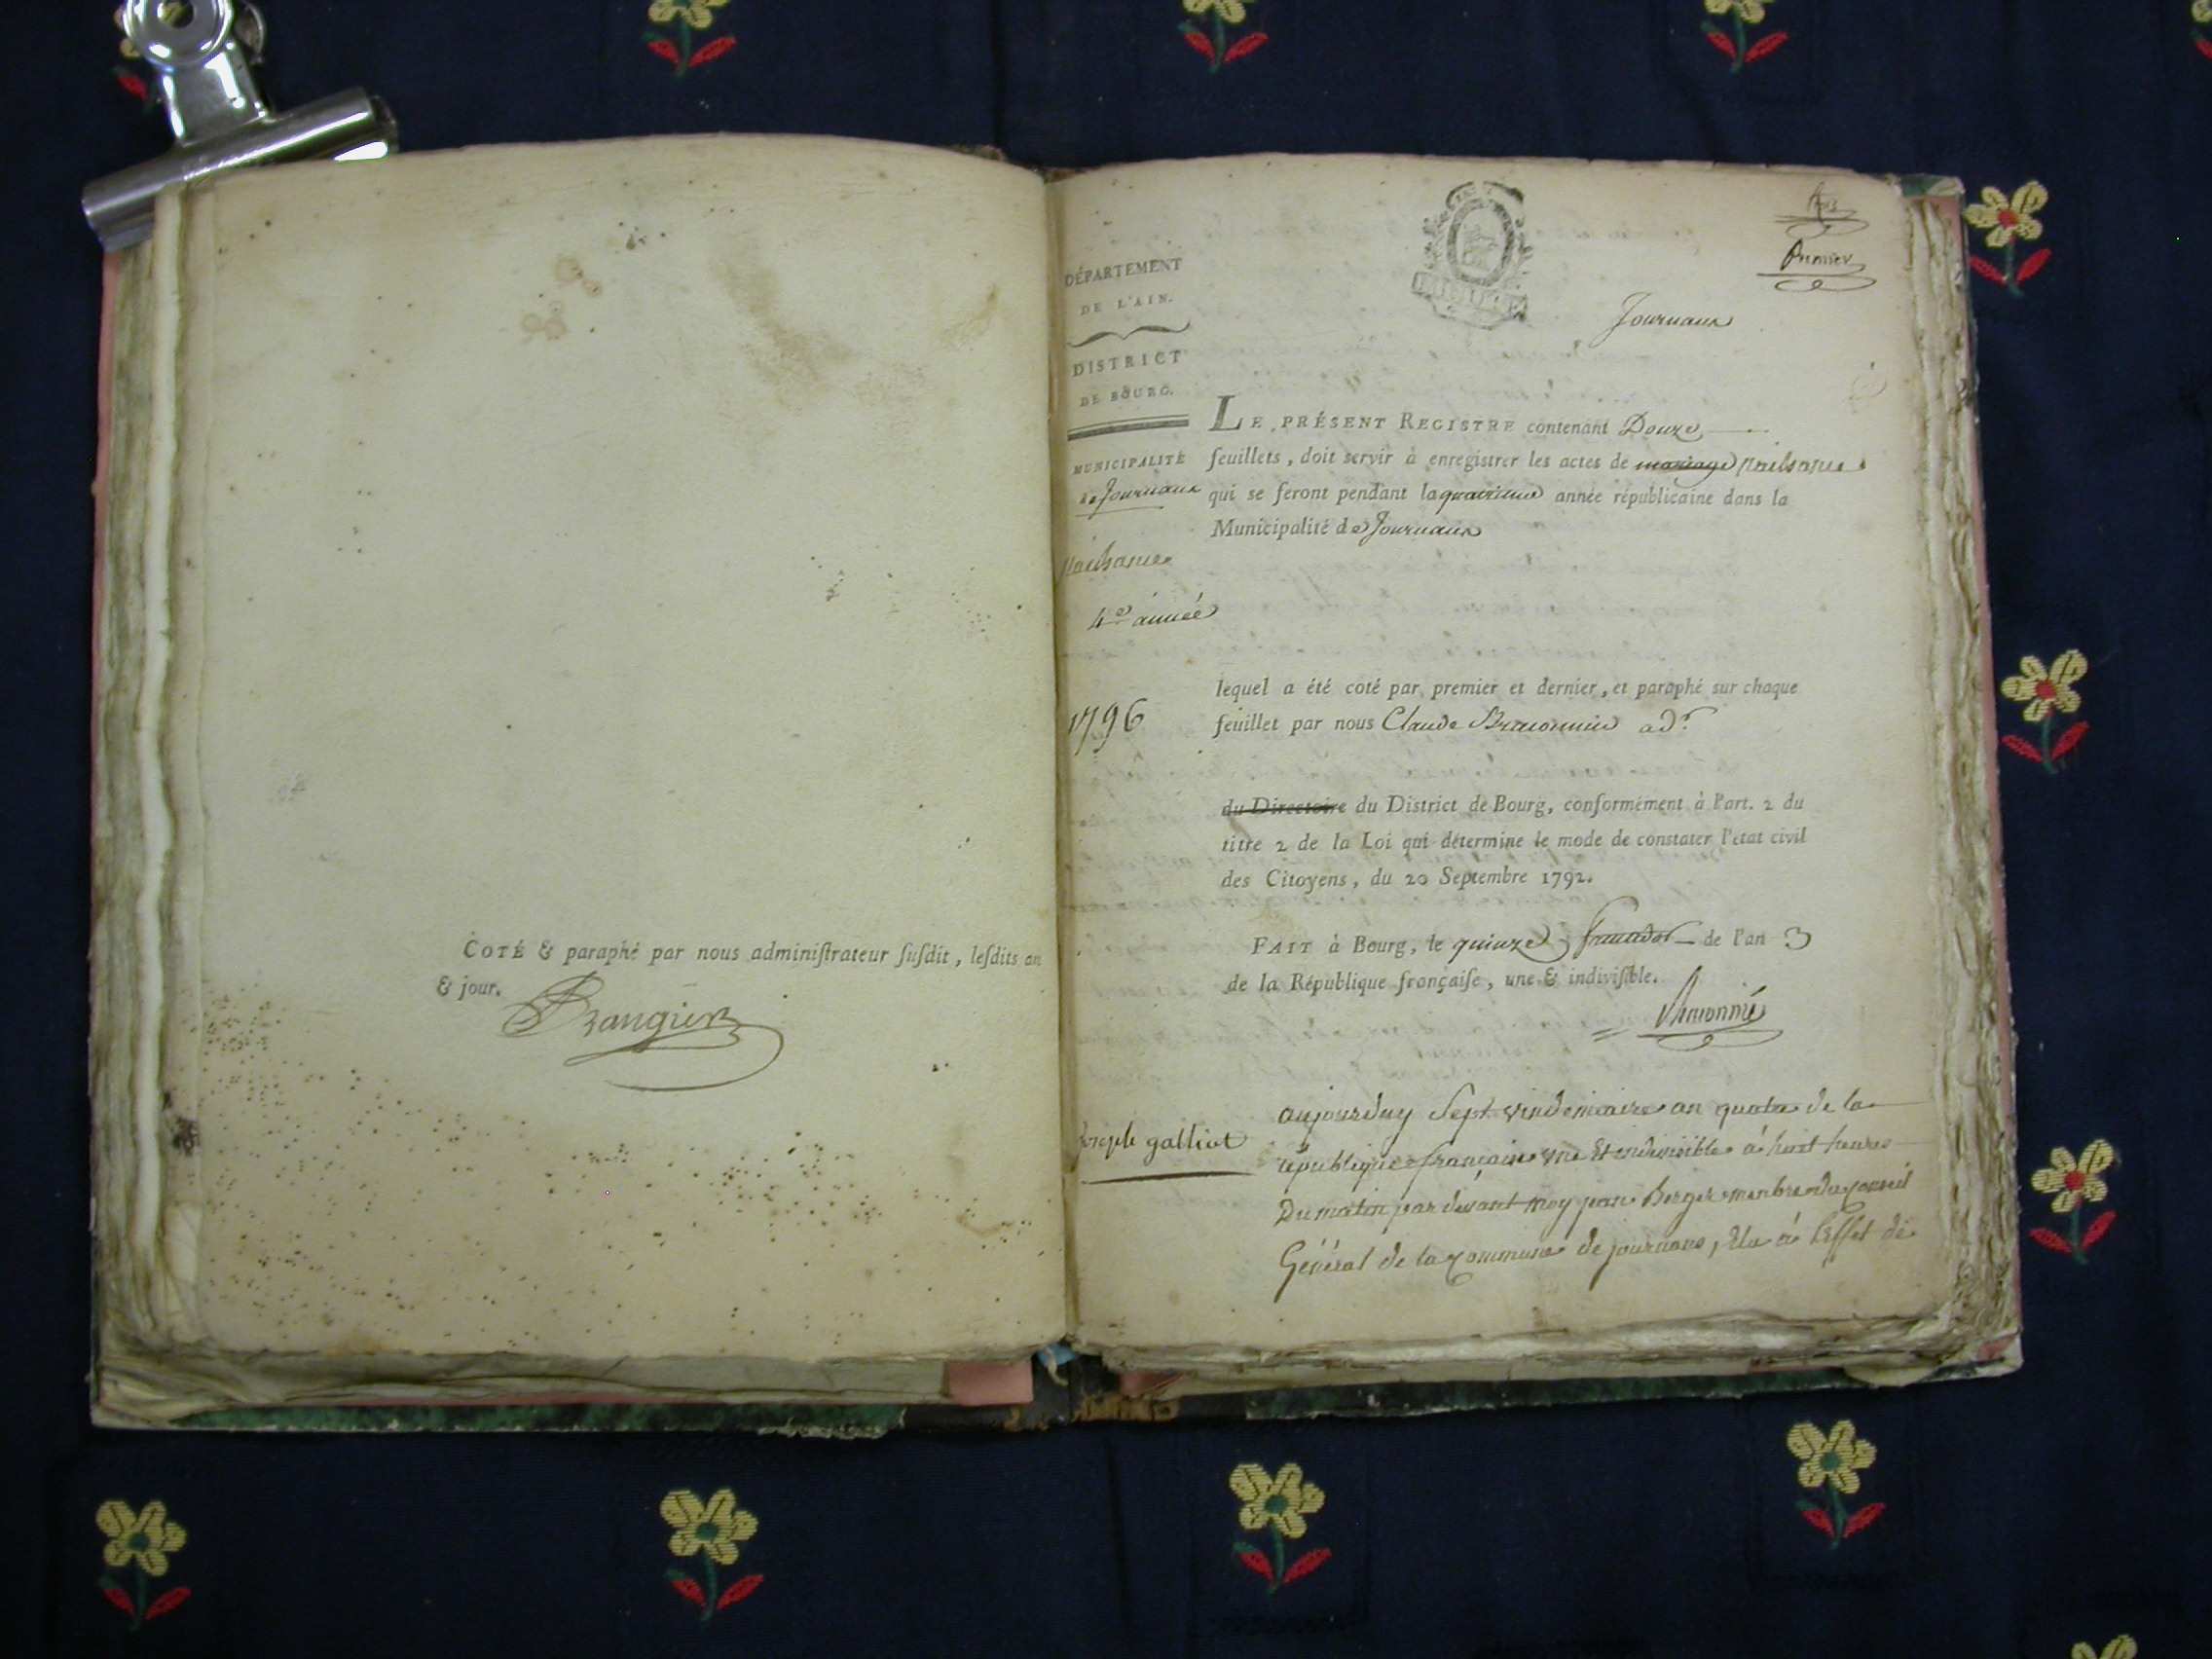 COTÉ & paraphé par nous administrateur susdit, lesdits an
& jour.
DÉPARTEMENT
DE L'AIN.
DISTRICT
DE BOURG.
MUNICIPALITÉ
de Journans
naissance
4e année
1796
Joseph galliot
Premier
Journans
LE PRÉSENT REGISTRE contenant Douze
feuillets, doit servir à enregistrer les actes de mariage naissance
qui se feront pendant la quatrieme année républicaine dans la
Municipalité de Journans
lequel a été coté par premier et dernier, et paraphé sur chaque
feuillet par nous Claude ad.r
du Directoire du District de Bourg, conformément à l'art. 2 du
titre 2 de la Loi qui détermine le mode de constater l'etat civil
des Citoyens, du 20 Septembre 1792.
FAIT à Bourg, le quinze fructidor de l'an 3
de la République française, une & indivisible.
aujourduy Sept vindemiaire an quatre de la
république française une et indivisible à huit heures
Du matin par devant moy Berger menbre du conseil
Général de la commune de journans, élu à l'effet de